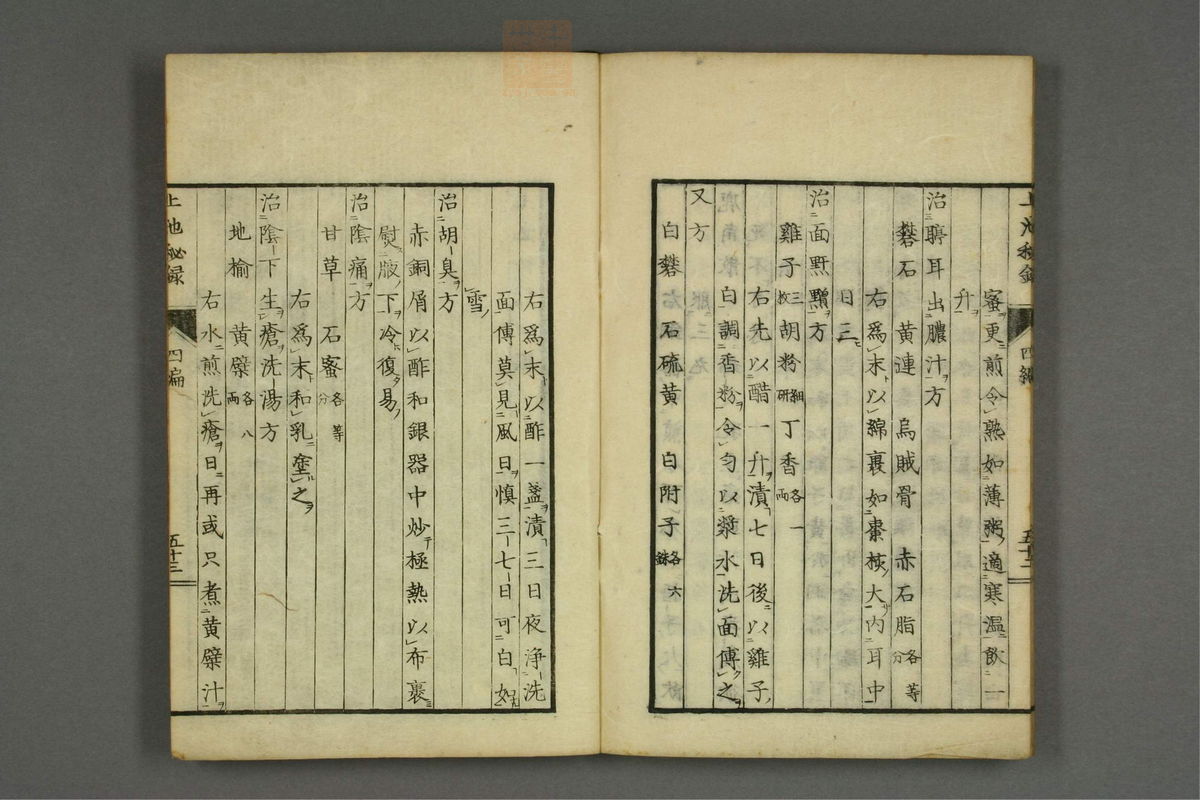 蜜更煎令熟如薄粥適寒温飲一
升
治聤耳出膿汁方
礬石 黄連 烏賊骨 赤石脂各等分
右為末以綿裹如棗核大内耳中
日三
治面䵟䵳方
雞子三枚 胡粉細研 丁香各一両
右先以醋一升漬七日後以雞子
白調香粉令匀以漿水洗面傅之
又方
白礬 石硫黄 白附子各六銖
右為末以酢一盞漬三日夜浄洗
面傅莫見風日慎三七日可白如
雪
治胡臭方
赤銅屑以酢和銀器中炒極熱以布裹
熨腋下冷復易
治陰痛方
甘草 石蜜各等分
右為末和乳塗之
治陰下生瘡洗湯方
地榆 黄檗各八両
右水煎洗瘡日再或只煮黄檗汁
上池秘録 四編 五十三